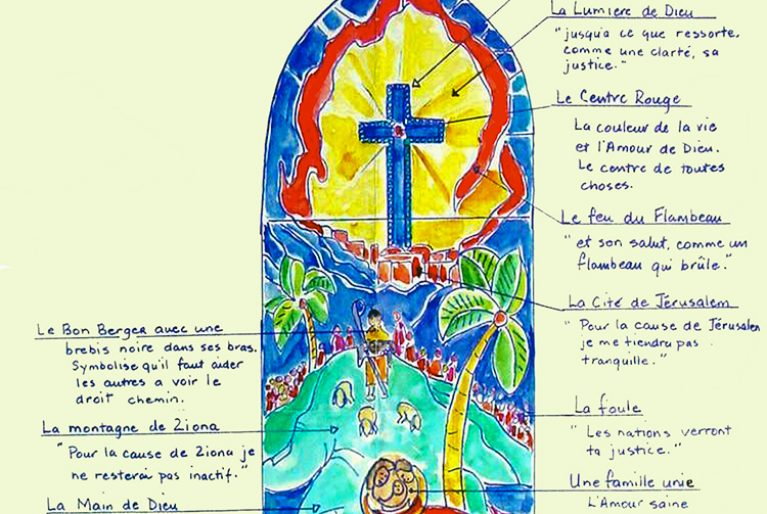 La Lumière de Dieu
"jusqu'a ce que ressorte,
comme une clarté, sa
justice."
Le Centre Rouge
La couleur de la vie
et l'Amour de Dieu.
Le centre de toutes
choses.
Le feu du Flambeau
"et son salut, comme un
flambeau qui brûle."
La Cité de Jérusalem
"Pour la cause de Jérusalem
je me tiendru pas
tranquille."
La foule
"Les nations verront
ta justice."
Une famille unie
L'Amour saine
Le Bon Berger avec une
brebis noire dans ses bras.
Symbolise qu'il faut aider
les autres a voir le
droit chemin.
La montagne de Ziona
"Pour la cause de Ziona je
ne resterai pas inactif."
La Main de Dieu